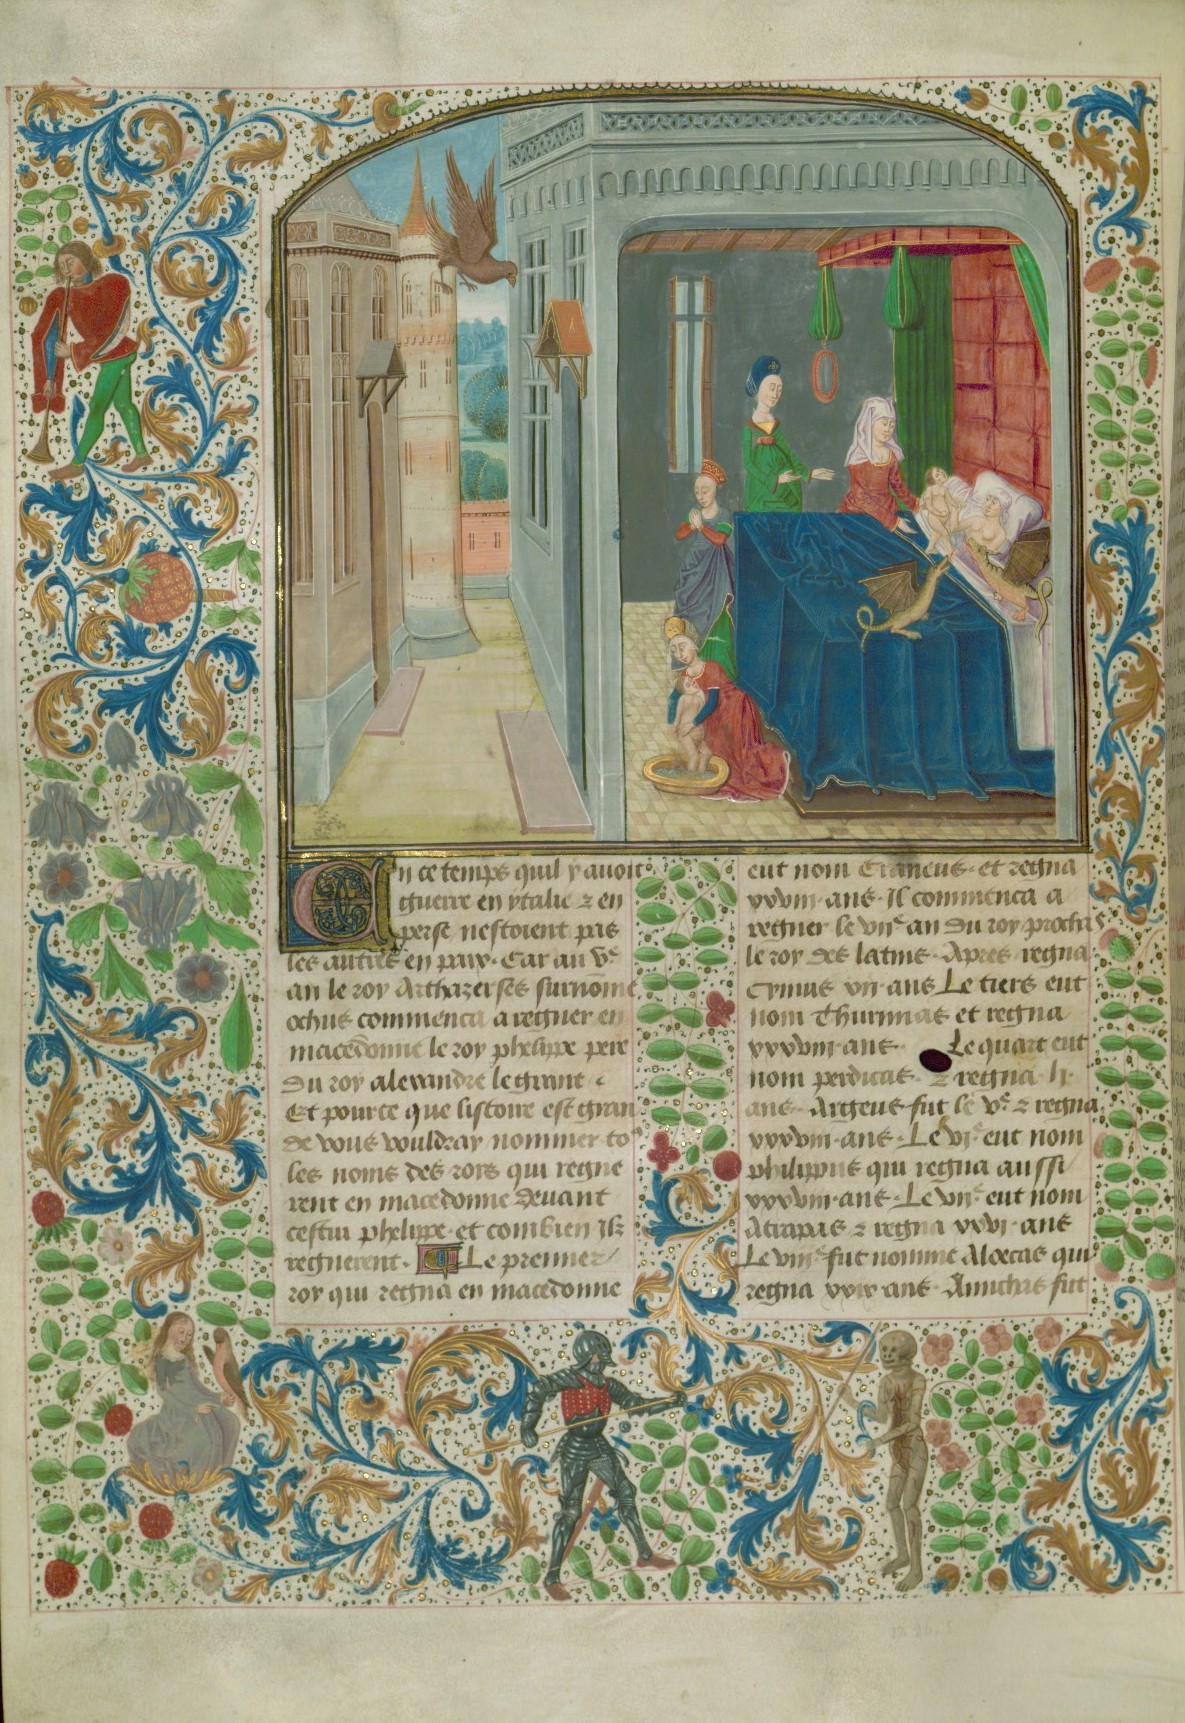 En ce temps quil y auoit
guerre en ytalie & en
perse nestoient pas
les autres en paix. Car au Ve
an le roy Arthazerses surnōme
ochus commenca a regner en
macedonne le roy phelippe pere
du roy alexandre le grant.
Et pource que listoire est gran
de vous vouldray nommer to9
les noms des rois qui regne
rent en macedonne deuant
cestui phelippe. et combien ilz
regnerent. Le premier
roy qui regna en macedonne
eut nom Craneus. et regna
xxviii. ans. Il commenca a
regner le viie an du roy prochas
le roy des latins. Apres regna
Cymus xii. ans Le tiers eut
nom Thurimas et regna
xxxviii. ans. Le quart eut
nom perdicas. & regna li.
ans. Argeus fut le Ve. & regna
xxxviii. ans. Le vie eut nom
philippus qui regna aussi
xxxviii. ans. Le viie eut nom
Atrapas & regna xxvi. ans
Le viiie fut nomme Aloecas qui
regna xxix. ans. Amichas fut